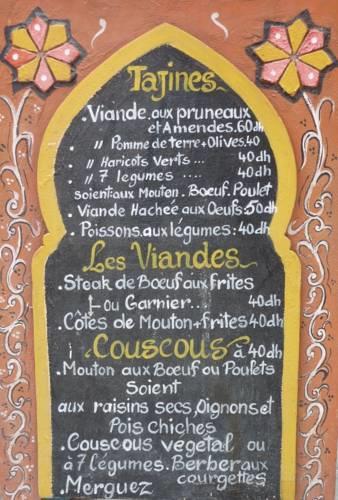 Tajines
. Viande aux pruneaux
et Amendes. 60dh
. " Pomme de terre + Olives. 40
. " Haricots verts ... 40dh
. " 7 legumes .... 40dh
soient aux Mouton. Boeuf. Poulet
. Viande Hachée aux Oeufs: 50dh
. Poissons. aux légumes: 40dh
Les Viandes
. Steak de Boeuf aux frites
ou Garnier... 40dh
. Côtes de Mouton + frites 40dh
Couscous à 40dh
. Mouton aux Boeuf ou Poulets
Soient
aux raisins secs, Oignons et
Pois chiches
. Couscous vegetal ou
à 7 légumes. Berber aux
courgettes
. Merguez